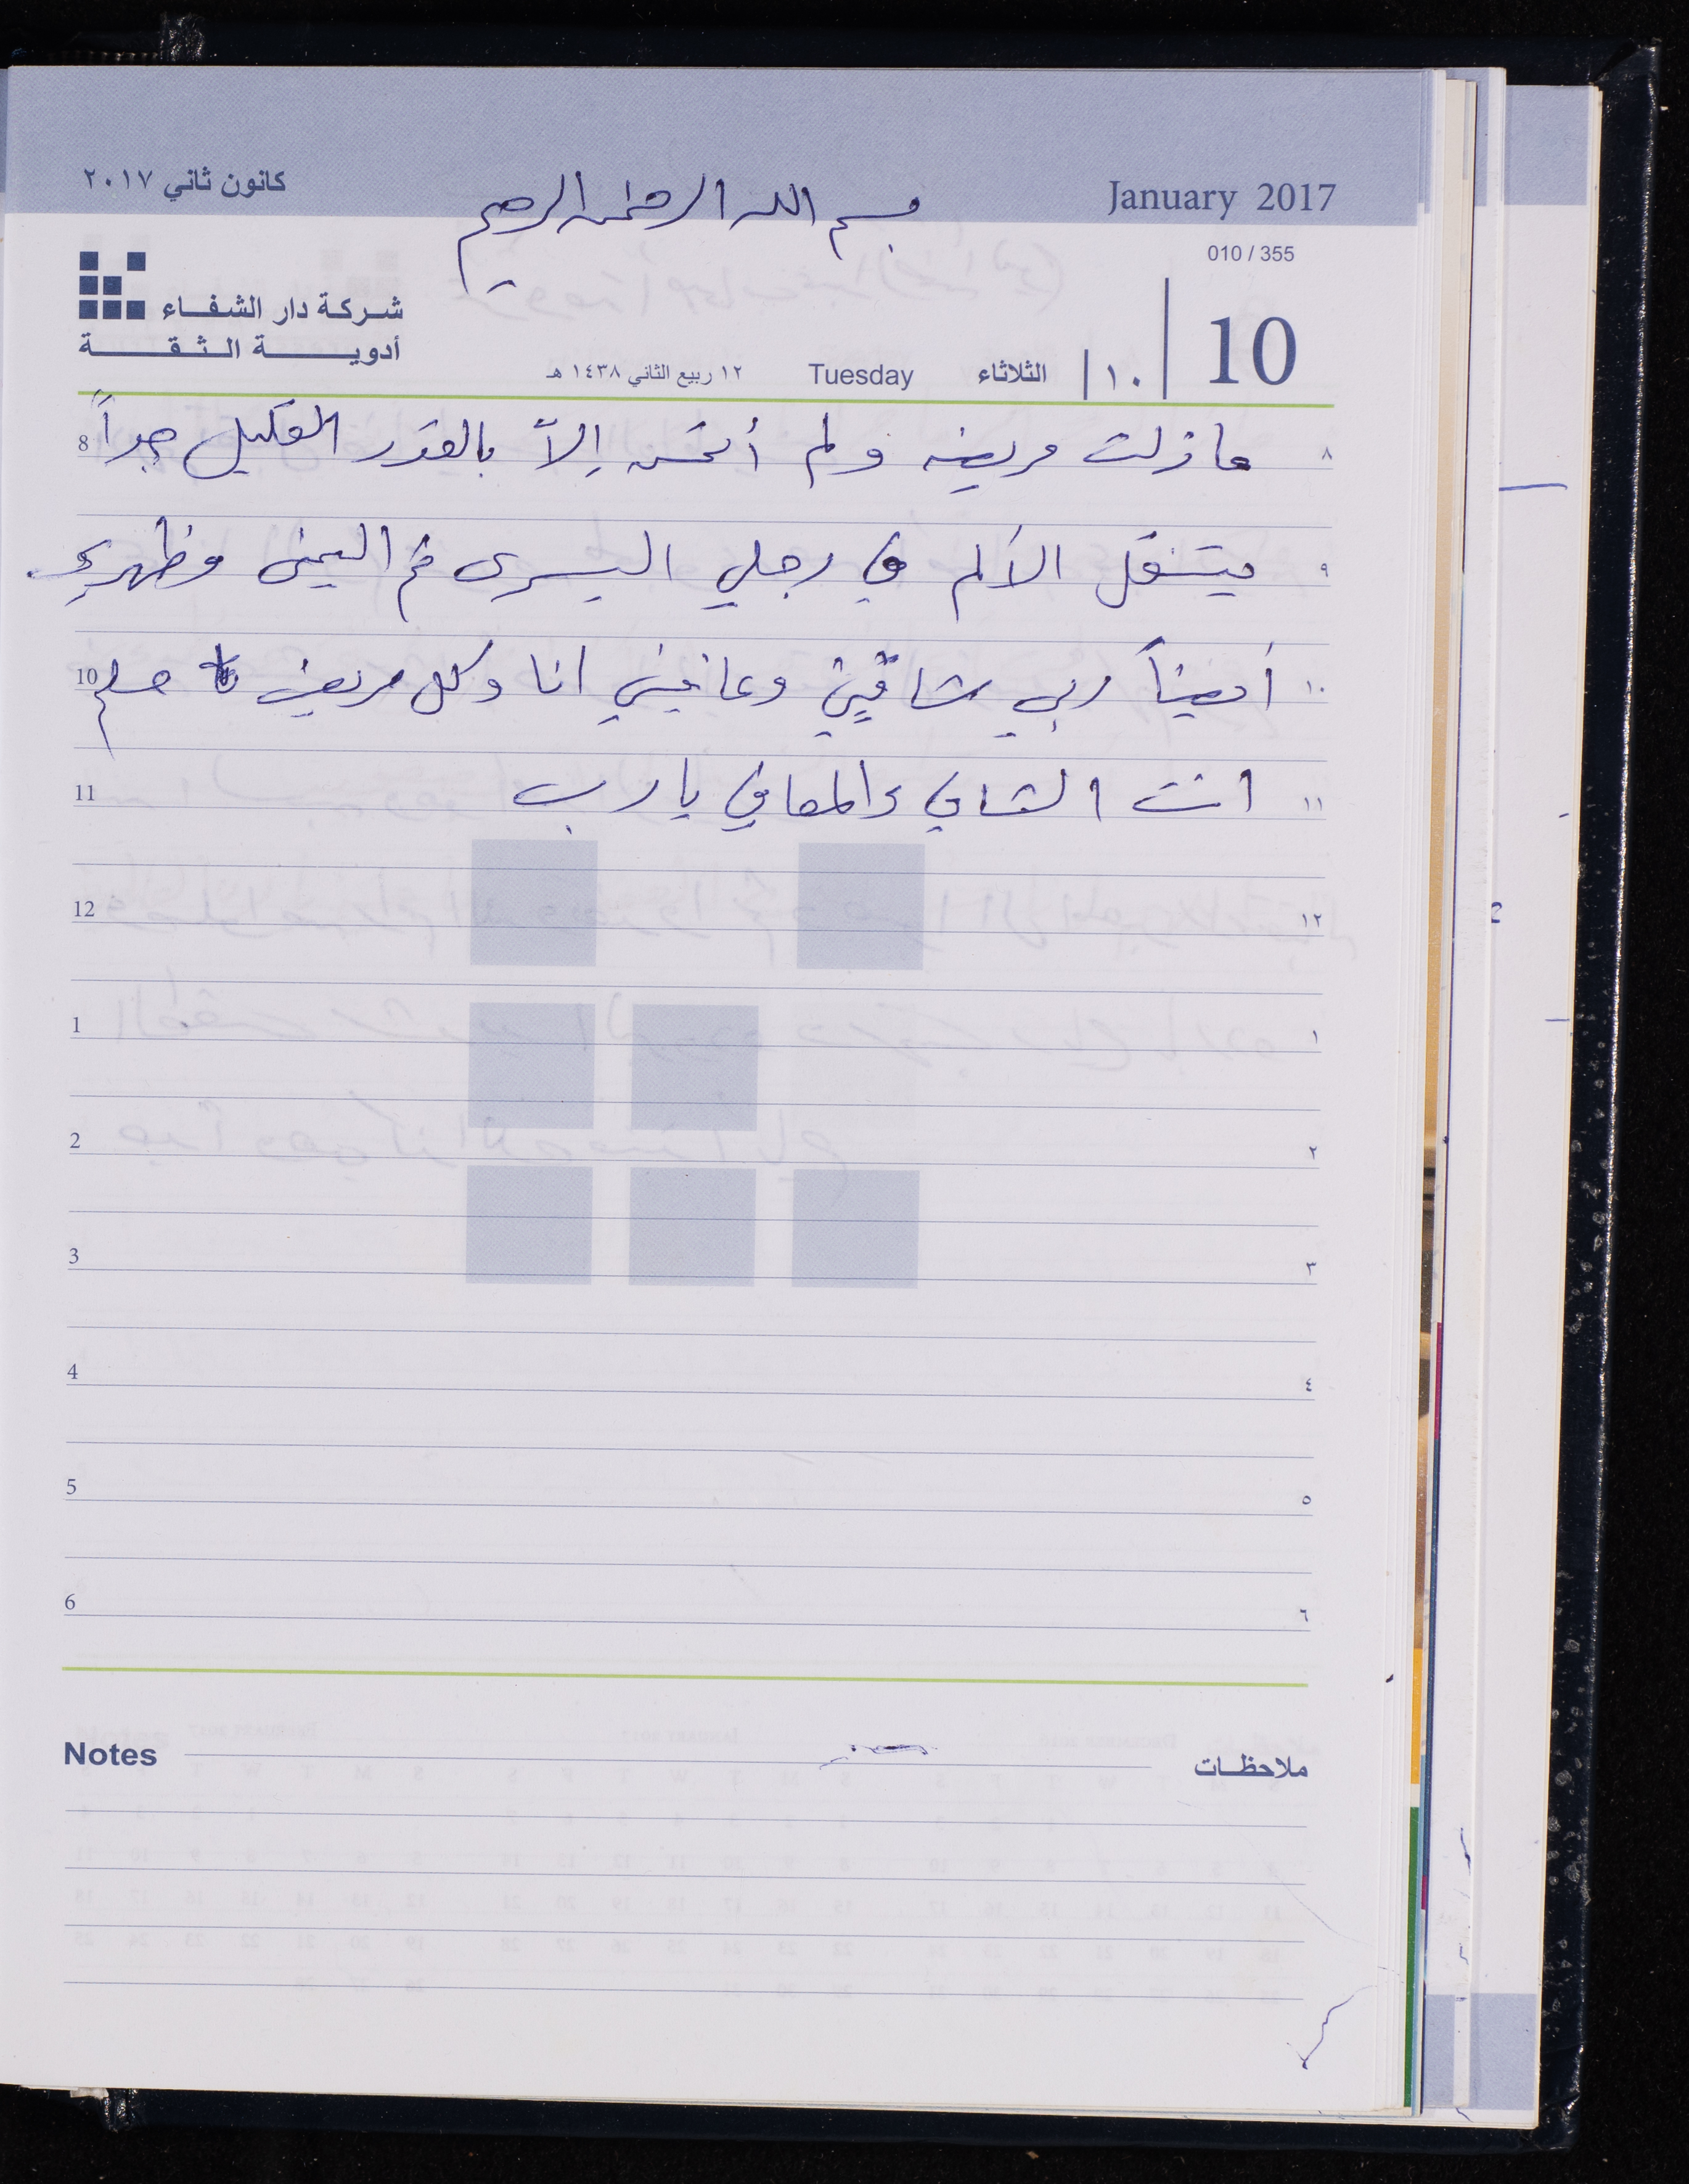 كانون ثاني ٢٠١٧
بسم الله الرحمن الرحيم
January 2017
010 / 355
شركة دار الشفاء
أدوية الثقة
١٢ ربيع الثاني ١٤٣٨ هـ Tuesday الثلاثاء ١٠ 10
8 ما زلت مريضه ولم أتحسن إلاّ بالقدر القليل جداً ٨
يتنقل الألم في رجلي اليسرى ثم اليمنى وظهري ٩
10 أيضاً ربي شافيني وعافيني انا وكل مريض مسلم ١٠
11 انت الشافي والمعافي يا رب ١١
12 ١٢
1 ١
2 ٢
3 ٣
4 ٤
5 ٥
6 ٦
Notes ملاحظات